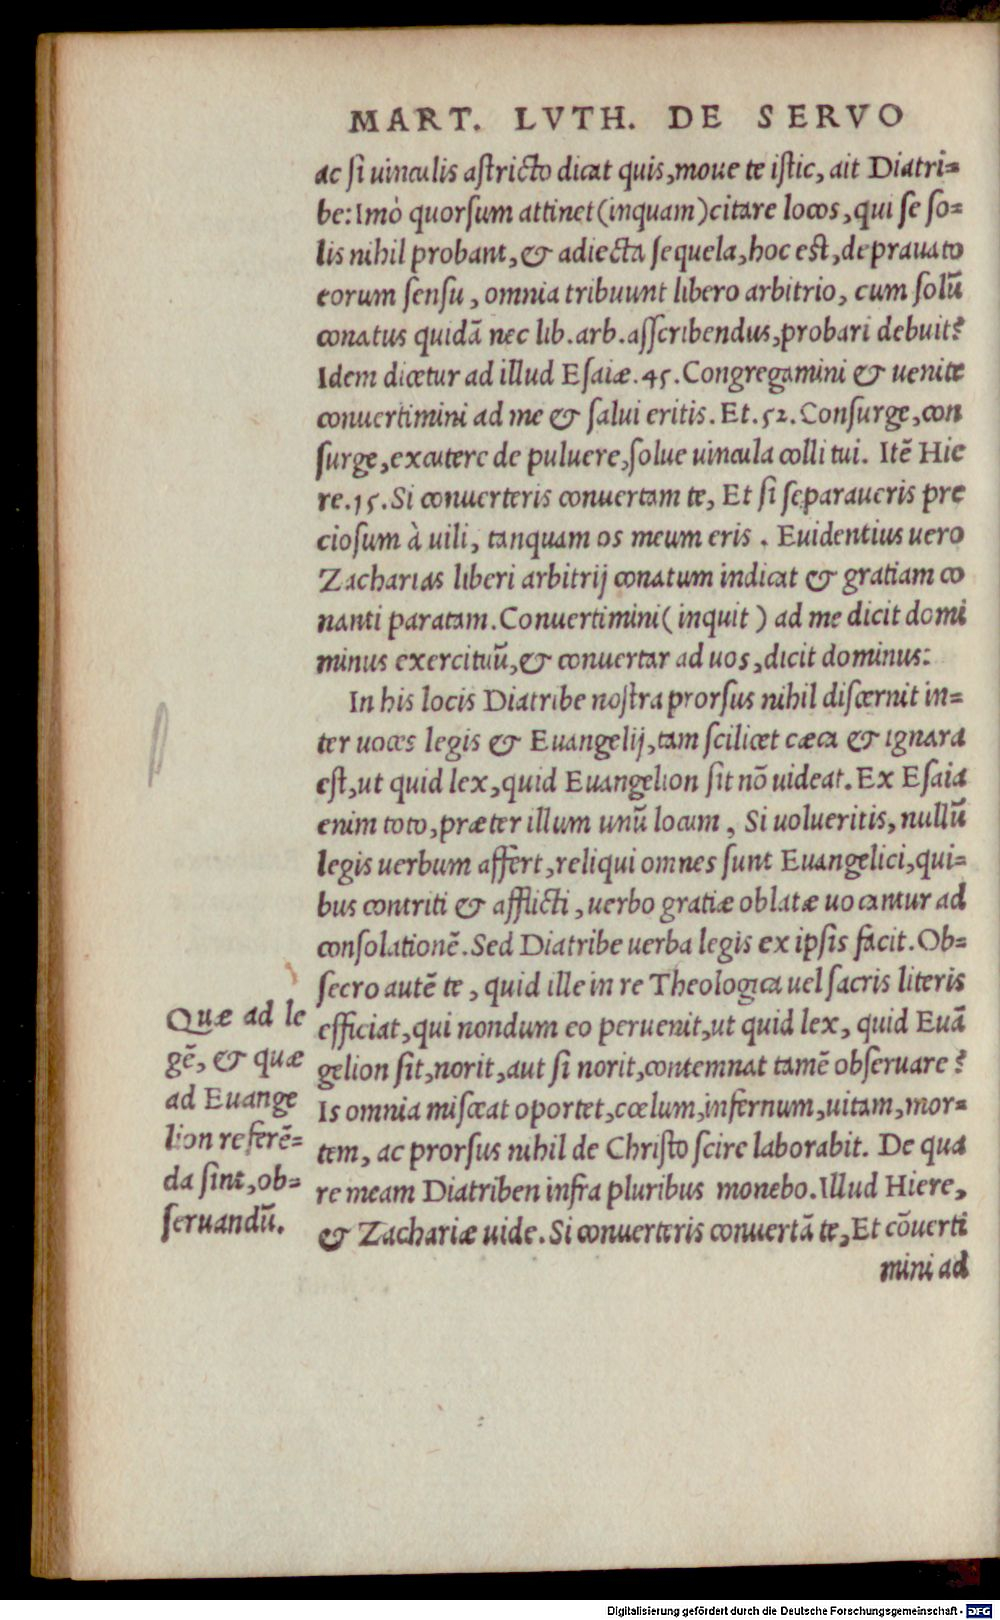 MART. LVTH. DE SERVO
ac ſi uinculis aſtricto dicat quis, moue te iſtic, ait Diatri=
be: Imò quorſum attinet (inquam) citare locos, qui ſe ſo=
lis nihil probant, & adiecta ſequela, hoc eſt, deprauato
eorum ſenſu, omnia tribuunt libero arbitrio, cum ſolũ
conatus quidã nec lib. arb. aſſcribendus, probari debuit?
Idem dicetur ad illud Eſaiæ. 45. Congregamini & uenite
conuertimini ad me & ſalui eritis. Et. 52. Conſurge, con
ſurge, excutere de puluere, ſolue uincula colli tui. Itẽ Hie
re. 15. Si conuerteris conuertam te, Et ſi ſeparaueris pre
cioſum à uili, tanquam os meum eris. Euidentius uero
Zacharias liberi arbitrij conatum indicat & gratiam co
nanti paratam. Conuertimini (inquit) ad me dicit domi
minus exercituũ, & conuertar ad uos, dicit dominus:
In his locis Diatribe noſtra prorſus nihil diſcernit in=
ter uoces legis & Euangelij, tam ſcilicet cæca & ignara
eſt, ut quid lex, quid Euangelion ſit nõ uideat. Ex Eſaia
enim toto, præter illum unũ locum, Si uolueritis, nullũ
legis uerbum affert, reliqui omnes ſunt Euangelici, qui=
bus contriti & afflicti, uerbo gratiæ oblatæ uocantur ad
conſolationẽ. Sed Diatribe uerba legis ex ipſis facit. Ob=
ſecro autẽ te, quid ille in re Theologica uel ſacris literis
efficiat, qui nondum eo peruenit, ut quid lex, quid Euã
gelion ſit, norit, aut ſi norit, contemnat tamẽ obſeruare?
Is omnia miſceat oportet, cœlum, infernum, uitam, mor=
tem, ac prorſus nihil de Chriſto ſcire laborabit. De qua
re meam Diatriben infra pluribus monebo. Illud Hiere,
& Zachariæ uide. Si conuerteris conuertã te, Et cõuerti
mini ad
Quæ ad le
gẽ, & quæ
ad Euange
lion referẽ=
da ſint, ob=
ſeruandũ.
Digitalisierung gefördert durch die Deutsche Forschungsgemeinschaft - DFG